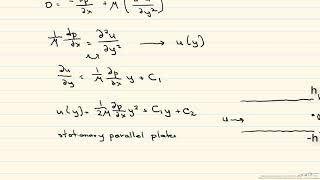 0 = -∂p/∂x + μ(∂²u/∂y²)
1/μ ∂p/∂x = ∂²u/∂y² → u(y)
∂u/∂y = 1/μ ∂p/∂x y + C₁
u(y) = 1/2μ ∂p/∂x y² + C₁y + C₂
stationary parallel plates
h
u→
-h